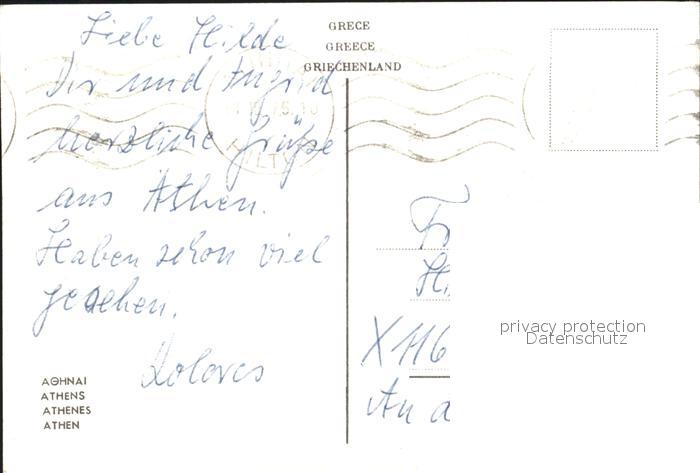 GRECE
GREECE
GRIECHENLAND
Liebe Hilde
Dir und Ingrid
herzliche Grüße
aus Athen.
Haben schon viel
gesehen.
Dolores
ΑΘΗΝΑΙ
ATHENS
ATHENES
ATHEN
Fr
Hi
X 116
An d
privacy protection
Datenschutz